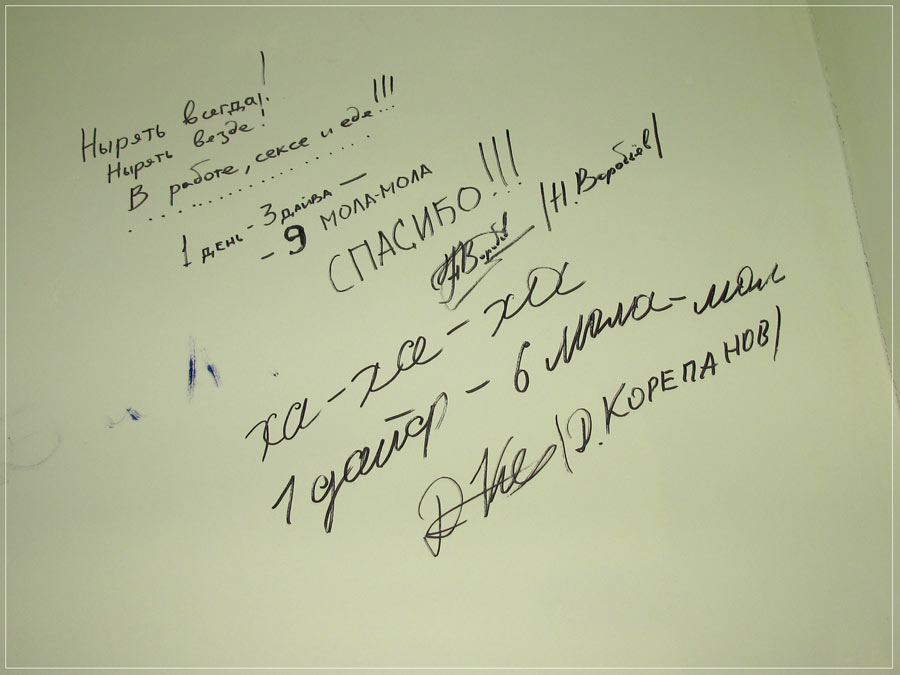 Нырять всегда!
Нырять везде!
В работе, сексе и еде!!!
1 день - 3 дайва -
- 9 мола-мола
СПАСИБО!!!
/Н. Воробьёв/
ха-ха-ха
1 дайвр - 6 мола-мол
/Д. КОРЕПАНОВ/